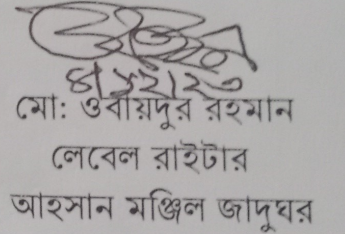 মো: ওবায়দুর রহমান
লেবেল রাইটার
আহসান মঞ্জিল জাদুঘর